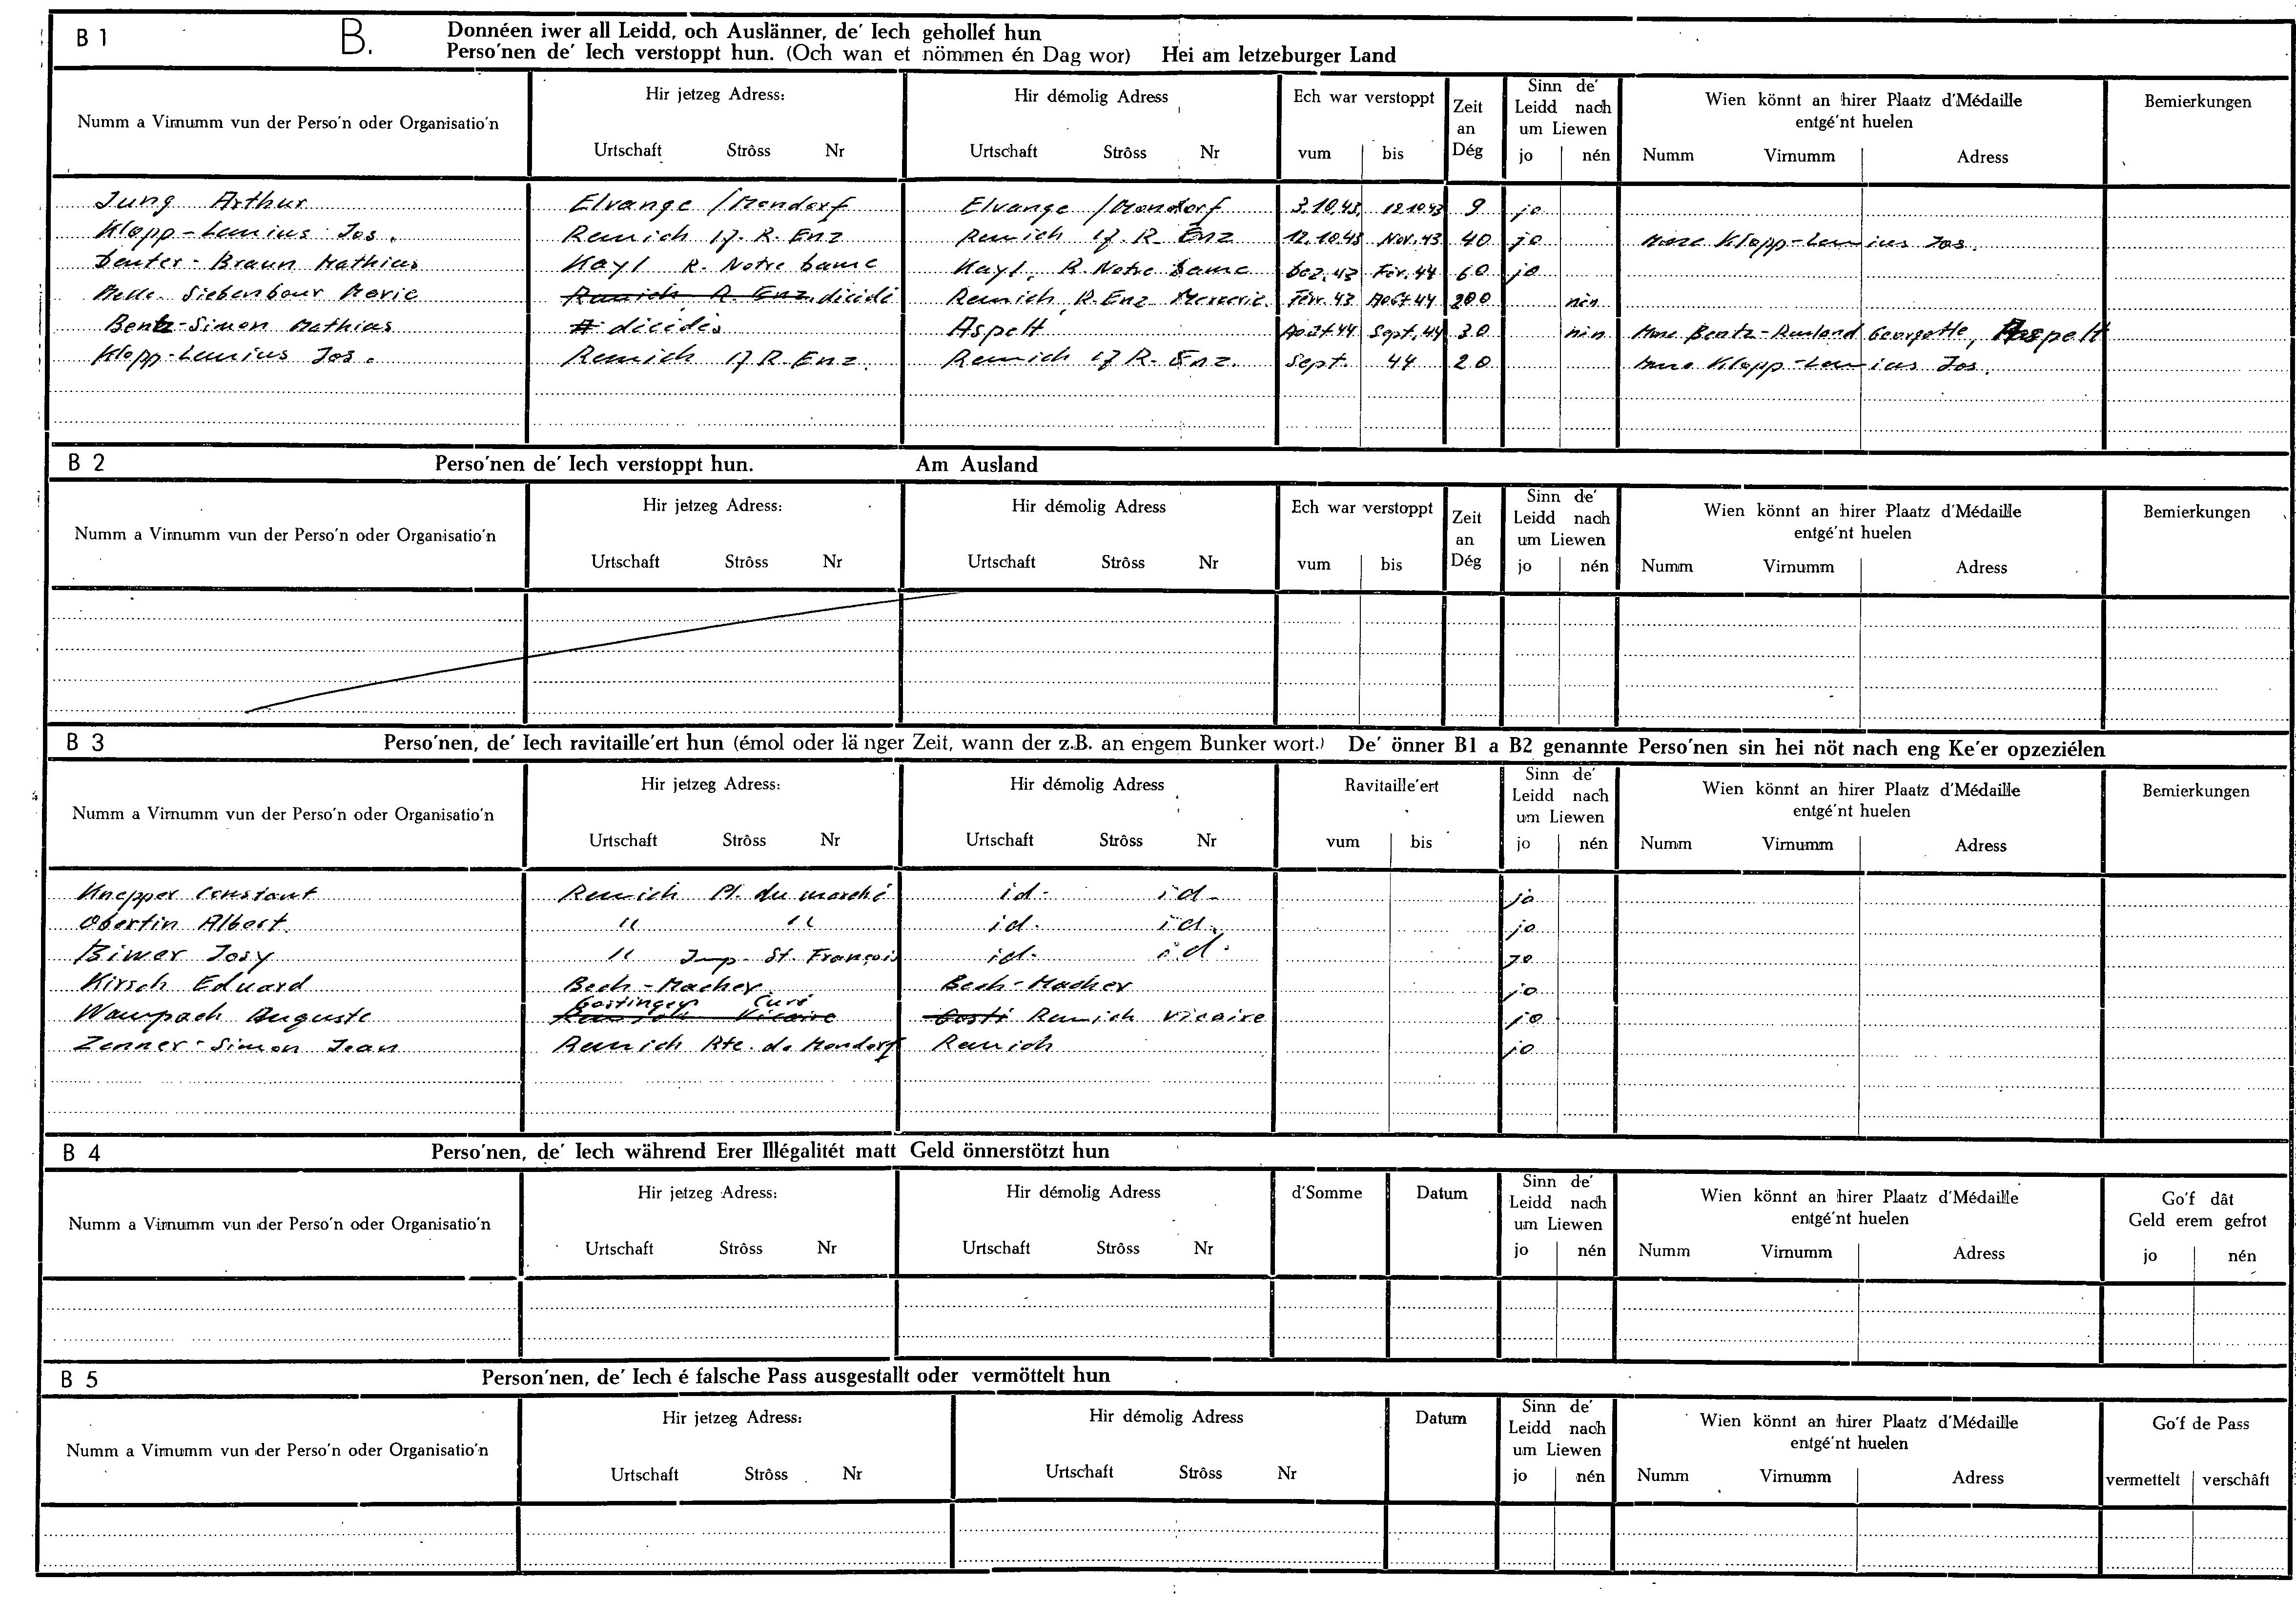 B 1 B. Donnéen iwer all Leidd, och Auslänner, de' Iech gehollef hun
Perso'nen de' Iech verstoppt hun. (Och wan et nömmen én Dag wor) Hei am letzeburger Land
Numm a Virnumm vun der Perso'n oder Organisatio'n
Hir jetzeg Adress:
Urtschaft Strôss Nr
Hir démolig Adress
Urtschaft Strôss Nr
Ech war verstoppt
vum bis
Zeit
an
Dég
Sinn de'
Leidd nach
um Liewen
jo nén
Wien könnt an hirer Plaatz d'Médaille
entgé'nt huelen
Numm Virnumm Adress
Bemierkungen
Jung Arthur Elvange / Mondorf Elvange / Mondorf 3.10.43 12.10.43 9 jo
Klopp-Lenius Jos. Remich 17. R. Enz Remich 17. R. Enz 12.10.43 Nov. 43 40 jo Mme Klopp-Lenius Jos.
Deuter-Braun Mathias Kayl R. Notre Dame Kayl, R. Notre Dame Dez. 43 Fev. 44 60 jo
Melle. Siebenbour Marie Remich R. Enz décédé Remich, R. Enz Mercerie. Fevr. 43 Août 44 200 nén
Bentz-Simon Mathias décédés Aspelt Août 44 Sept. 44 30 nén Mme Bentz- Georgette, Aspelt
Klopp-Lenius Jos. Remich 17 R. Enz. Remich 17 R. Enz. Sept. 44 20 Mme Klopp-Lenius Jos.
B 2 Perso'nen de' Iech verstoppt hun. Am Ausland
Numm a Virnumm vun der Perso'n oder Organisatio'n
Hir jetzeg Adress:
Urtschaft Strôss Nr
Hir démolig Adress
Urtschaft Strôss Nr
Ech war verstoppt
vum bis
Zeit
an
Dég
Sinn de'
Leidd nach
um Liewen
jo nén
Wien könnt an hirer Plaatz d'Médaille
entgé'nt huelen
Numm Virnumm Adress
Bemierkungen
B 3 Perso'nen, de' Iech ravitaille'ert hun (émol oder lä nger Zeit, wann der z.B. an engem Bunker wort.) De' önner B1 a B2 genannte Perso'nen sin hei nöt nach eng Ke'er opzeziélen
Numm a Virnumm vun der Perso'n oder Organisatio'n
Hir jetzeg Adress:
Urtschaft Strôss Nr
Hir démolig Adress
Urtschaft Strôss Nr
Ravitaille'ert
vum bis
Sinn de'
Leidd nach
um Liewen
jo nén
Wien könnt an hirer Plaatz d'Médaille
entgé'nt huelen
Numm Virnumm Adress
Bemierkungen
Knepper Constant Remich Pl. du marché id. id. jo
Obertin Albert. " " id. id. jo
Biwer Josy " Imp. St. François id. id. jo
Kirsch Eduard Bech-Macher Bech-Macher jo
Gostingen Curé
Wampach Auguste Remich Vicaire Gosti Remich Vicaire jo
Zenner-Simon Jean Remich Rte. de Mondorf Remich jo
B 4 Perso'nen, de' Iech während Erer Illégalitét matt Geld önnerstötzt hun
Numm a Virnumm vun der Perso'n oder Organisatio'n
Hir jetzeg Adress:
Urtschaft Strôss Nr
Hir démolig Adress
Urtschaft Strôss Nr
d'Somme
Datum
Sinn de'
Leidd nach
um Liewen
jo nén
Wien könnt an hirer Plaatz d'Médaille
entgé'nt huelen
Numm Virnumm Adress
Go'f dât
Geld erem gefrot
jo nén
B 5 Person'nen, de' Iech é falsche Pass ausgestallt oder vermöttelt hun
Numm a Virnumm vun der Perso'n oder Organisatio'n
Hir jetzeg Adress:
Urtschaft Strôss Nr
Hir démolig Adress
Urtschaft Strôss Nr
Datum
Sinn de'
Leidd nach
um Liewen
jo nén
Wien könnt an hirer Plaatz d'Médaille
entgé'nt huelen
Numm Virnumm Adress
Go'f de Pass
vermettelt verschâft